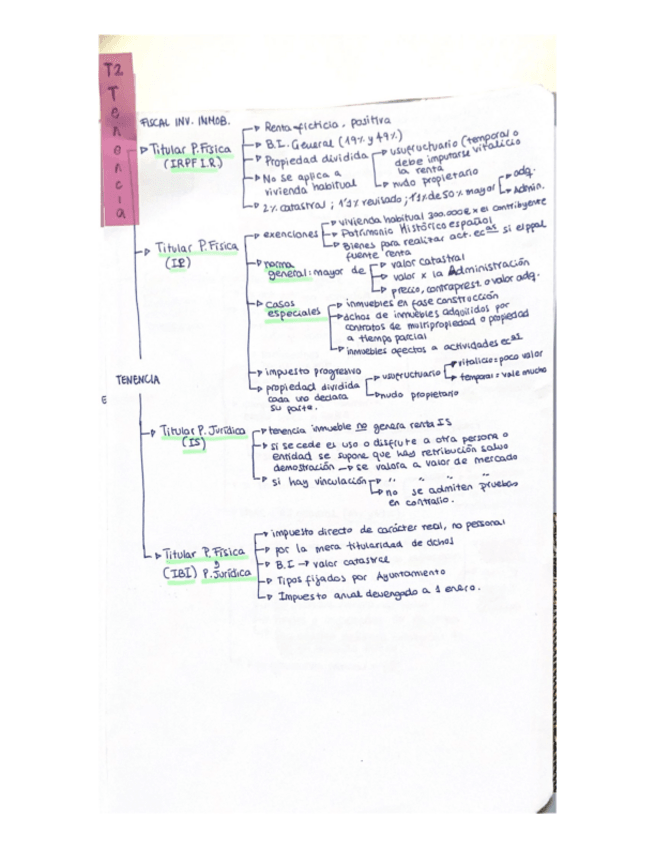 T2
Tenencia
FISCAL INV. INMOB.
Titular P. Física
(IRPF I.R)
Renta ficticia. positiva
B.I. General (19% y 49%)
Propiedad dividida
usufructuario (temporal o
vitalicio
debe imputarse
la renta
nudo propietario
No se aplica a
vivienda habitual
2% catastral ; 1'1% revisado ; 1'1% de 50% mayor
adq.
Admin.
Titular P. Física
(IP)
exenciones
vivienda habitual 300.000€ x el contribuyente
Patrimonio Histórico español
Bienes para realizar act. ecas si el ppal
fuente renta
norma
general: mayor de
valor catastral
valor x la Administración
precio, contraprest. o valor adq.
casos
especiales
inmuebles en fase construcción
dchos de inmuebles adquiridos por
contratos de multipropiedad o propiedad
a tiempo parcial
inmuebles afectos a actividades ecas
impuesto progresivo
propiedad dividida
cada uno declara
su parte.
usufructuario
vitalicio = poco valor
temporal = vale mucho
nudo propietario
TENENCIA
Titular P. Jurídica
(IS)
tenencia inmueble no genera renta IS
si se cede el uso o disfrute a otra persona o
entidad se supone que hay retribución salvo
demostración → se valora a valor de mercado
si hay vinculación
" " "
no se admiten pruebas
en contrario.
Titular P. Física
y
(IBI) P. Jurídica
impuesto directo de carácter real, no personal
por la mera titularidad de dchos
B.I → valor catastral
Tipos fijados por Ayuntamiento
Impuesto anual devengado a 1 enero.